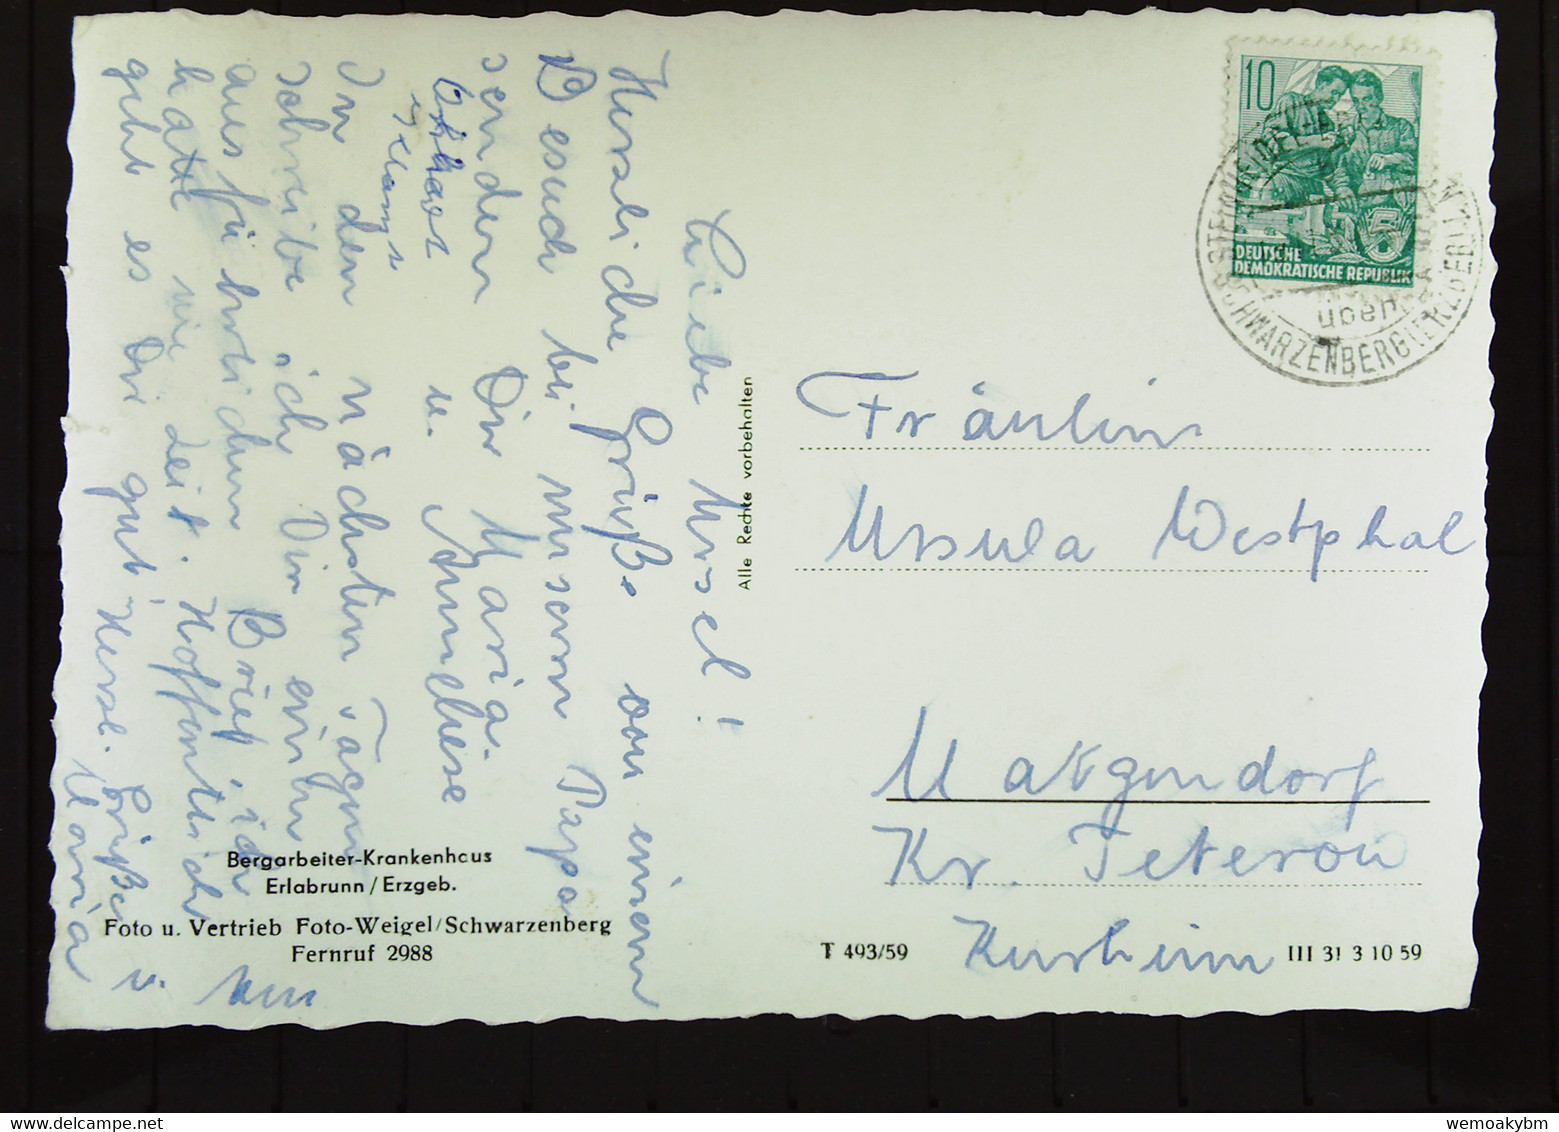 Liebe Ursel!
Herzliche Grüße von einem
Besuch bei unserm Papa
senden Dir Maria.
u. Annliese
In den nächsten Tagen
schreibe ich Dir einen
ausführlichen Brief, ich
hatte nie Zeit. Hoffentlich
geht es Dir gut. Herzl. Grüße
Maria
u.
Bergarbeiter-Krankenhaus
Erlabrunn / Erzgeb.
Foto u. Vertrieb Foto-Weigel/Schwarzenberg
Fernruf 2988
Alle Rechte vorbehalten
10
DEUTSCHE
DEMOKRATISCHE REPUBLIK
5
SCHWARZENBERG (ERZGEB)
über
Fräulein
Ursula Westphal
Matgendorf
Kr. Teterow
Kurheim
T 493/59
III 31 3 10 59
wemoakybm